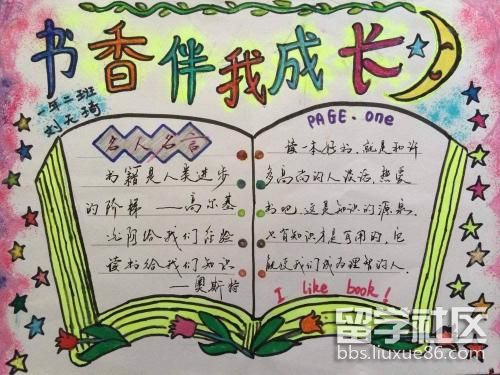 书香伴我成长
一年二班
刘天琦
名人名言
书籍是人类进步
的阶梯——高尔基
光阴给我们经验
读书给我们知识
——奥斯特
PAGE.one
读一本好书,就是和许
多高尚的人谈话,热爱
书吧,这是知识的源泉,
只有知识才是有用的,它
能使我们成为理智的人.
I like book!
留学社区
bbs.liuxue86.com